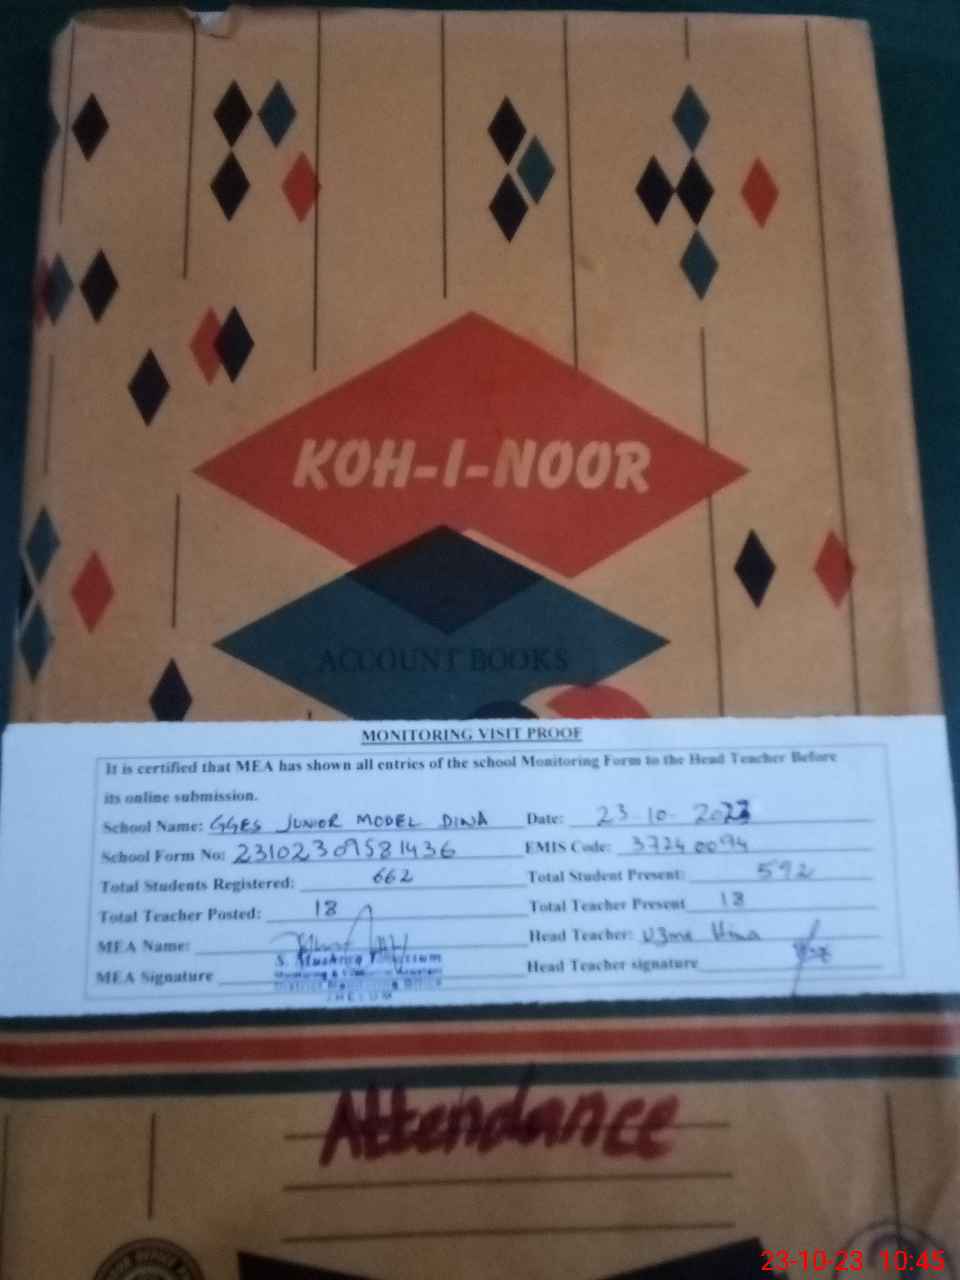 KOH-I-NOOR
ACCOUNT BOOKS
MONITORING VISIT PROOF
It is certified that MEA has shown all entries of the school Monitoring Form to the Head Teacher Before
its online submission.
School Name: GGES JUNIOR MODEL DINA Date: 23-10-2023
School Form No: 23102309581436 EMIS Code: 37240094
Total Students Registered: 662 Total Student Present: 592
Total Teacher Posted: 18 Total Teacher Present 18
MEA Name: Head Teacher: Uzma Hina
S. Mushtaq
MEA Signature Head Teacher signature
District Monitoring Office
JHELUM
Attendance
23-10-23 10:45